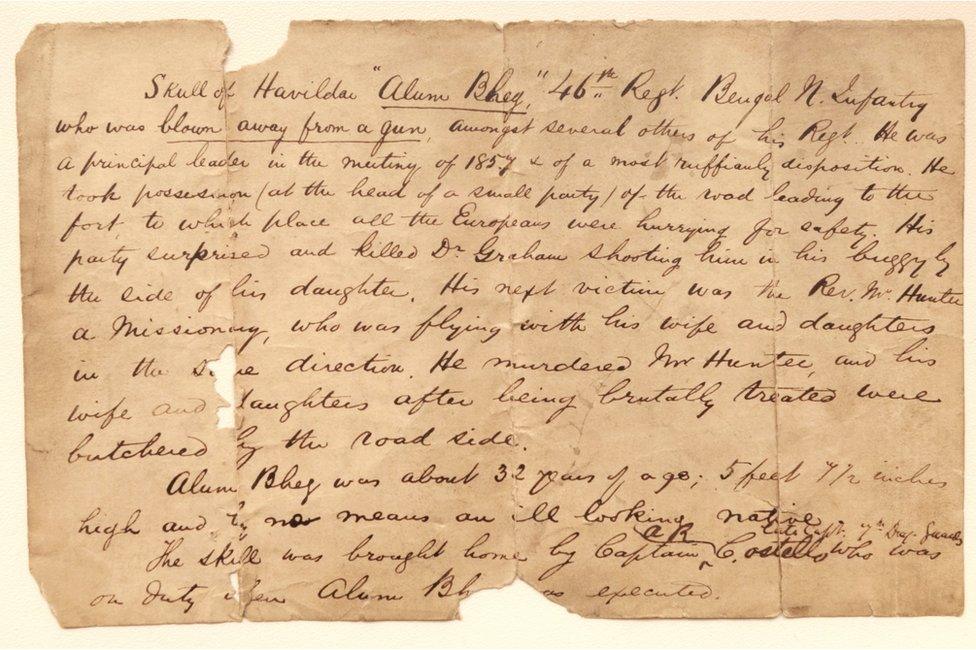 Skull of Havildar "Alum Bheg," 46th Regt. Bengal N. Infantry
who was blown away from a gun, amongst several others of his Regt. He was
a principal leader in the mutiny of 1857 & of a most ruffianly disposition. He
took possession (at the head of a small party) of the road leading to the
fort, to which place all the Europeans were hurrying for safety. His
party surprised and killed Dr. Graham shooting him in his buggy by
the side of his daughter. His next victim was the Rev. Mr. Hunter
a Missionary, who was flying with his wife and daughters
in the same direction. He murdered Mr Hunter, and his
wife and daughters after being brutally treated were
butchered by the road side.
Alum Bheg was about 32 years of age; 5 feet 7 1/2 inches
high and by no means an ill looking native.
The skull was brought home by Captain AR Costello late Capt. 7th Drag. Guards who was
on duty when Alum Bh as executed.